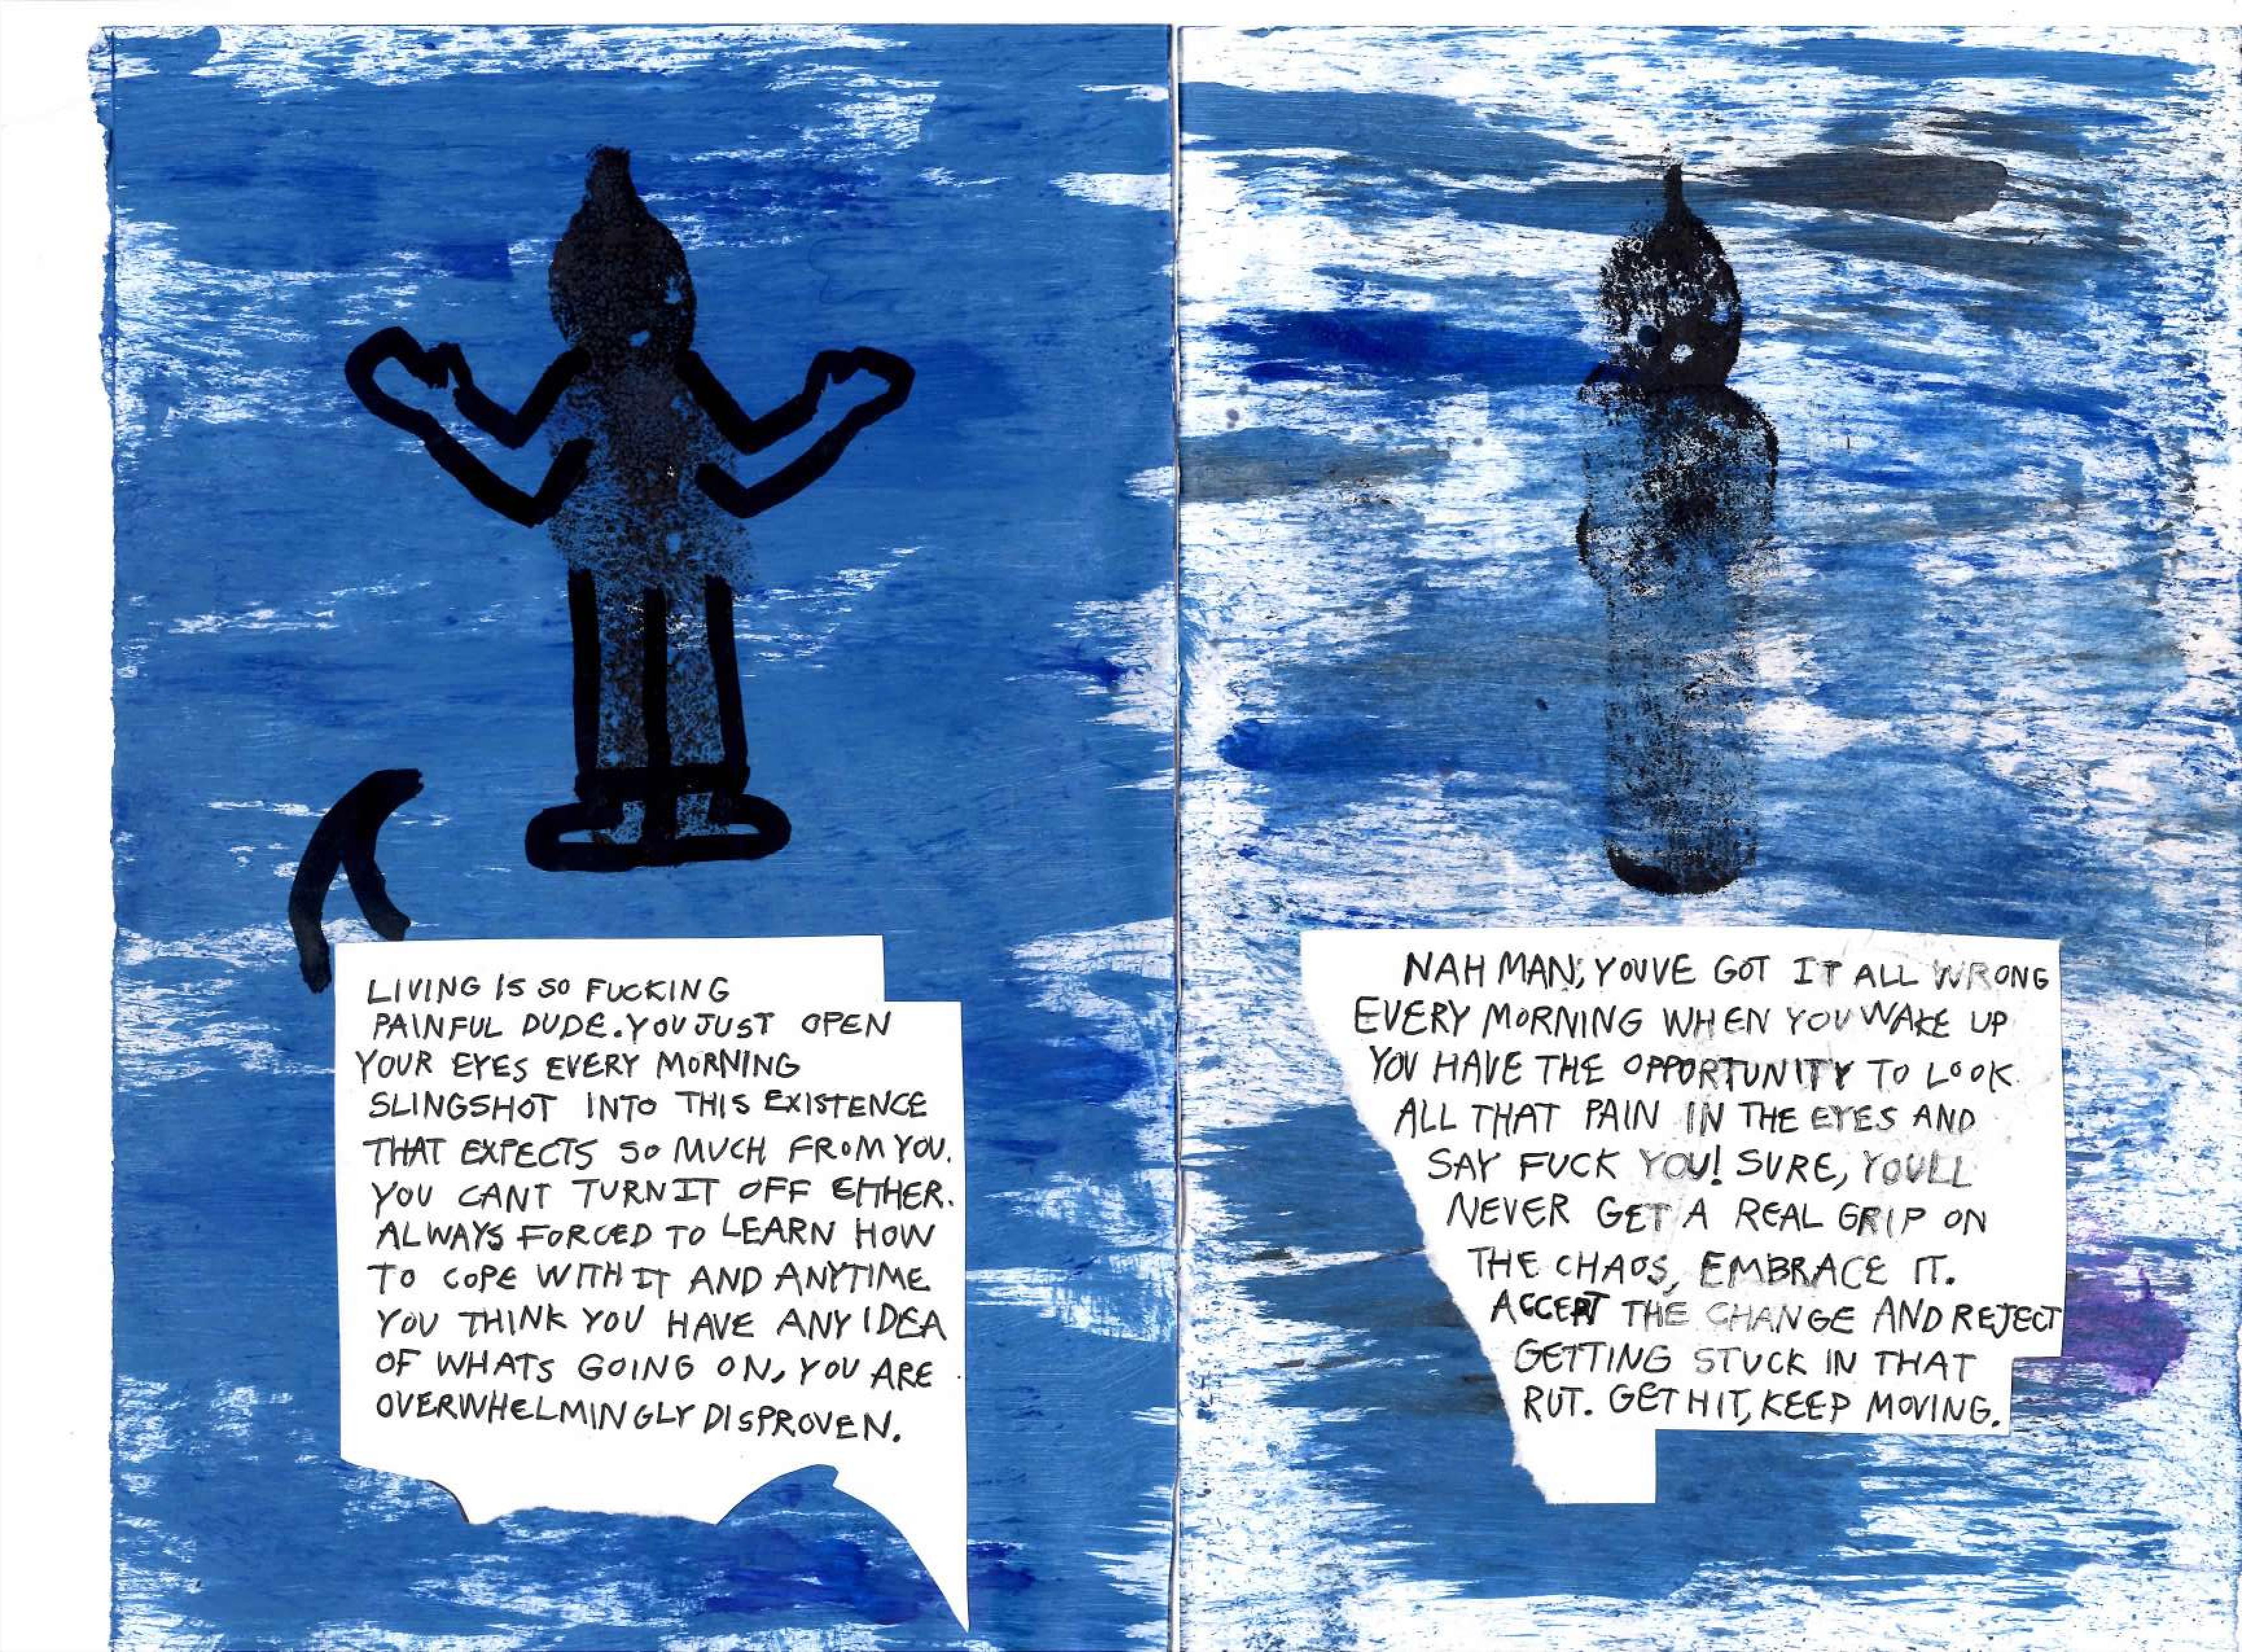 LIVING IS SO FUCKING
PAINFUL DUDE. YOU JUST OPEN
YOUR EYES EVERY MORNING
SLINGSHOT INTO THIS EXISTENCE
THAT EXPECTS SO MUCH FROM YOU.
YOU CANT TURN IT OFF EITHER.
ALWAYS FORCED TO LEARN HOW
TO COPE WITH IT AND ANYTIME
YOU THINK YOU HAVE ANY IDEA
OF WHATS GOING ON, YOU ARE
OVERWHELMINGLY DISPROVEN.
NAH MAN, YOUVE GOT IT ALL WRONG
EVERY MORNING WHEN YOU WAKE UP
YOU HAVE THE OPPORTUNITY TO LOOK
ALL THAT PAIN IN THE EYES AND
SAY FUCK YOU! SURE, YOULL
NEVER GET A REAL GRIP ON
THE CHAOS, EMBRACE IT.
ACCEPT THE CHANGE AND REJECT
GETTING STUCK IN THAT
RUT. GET HIT, KEEP MOVING.